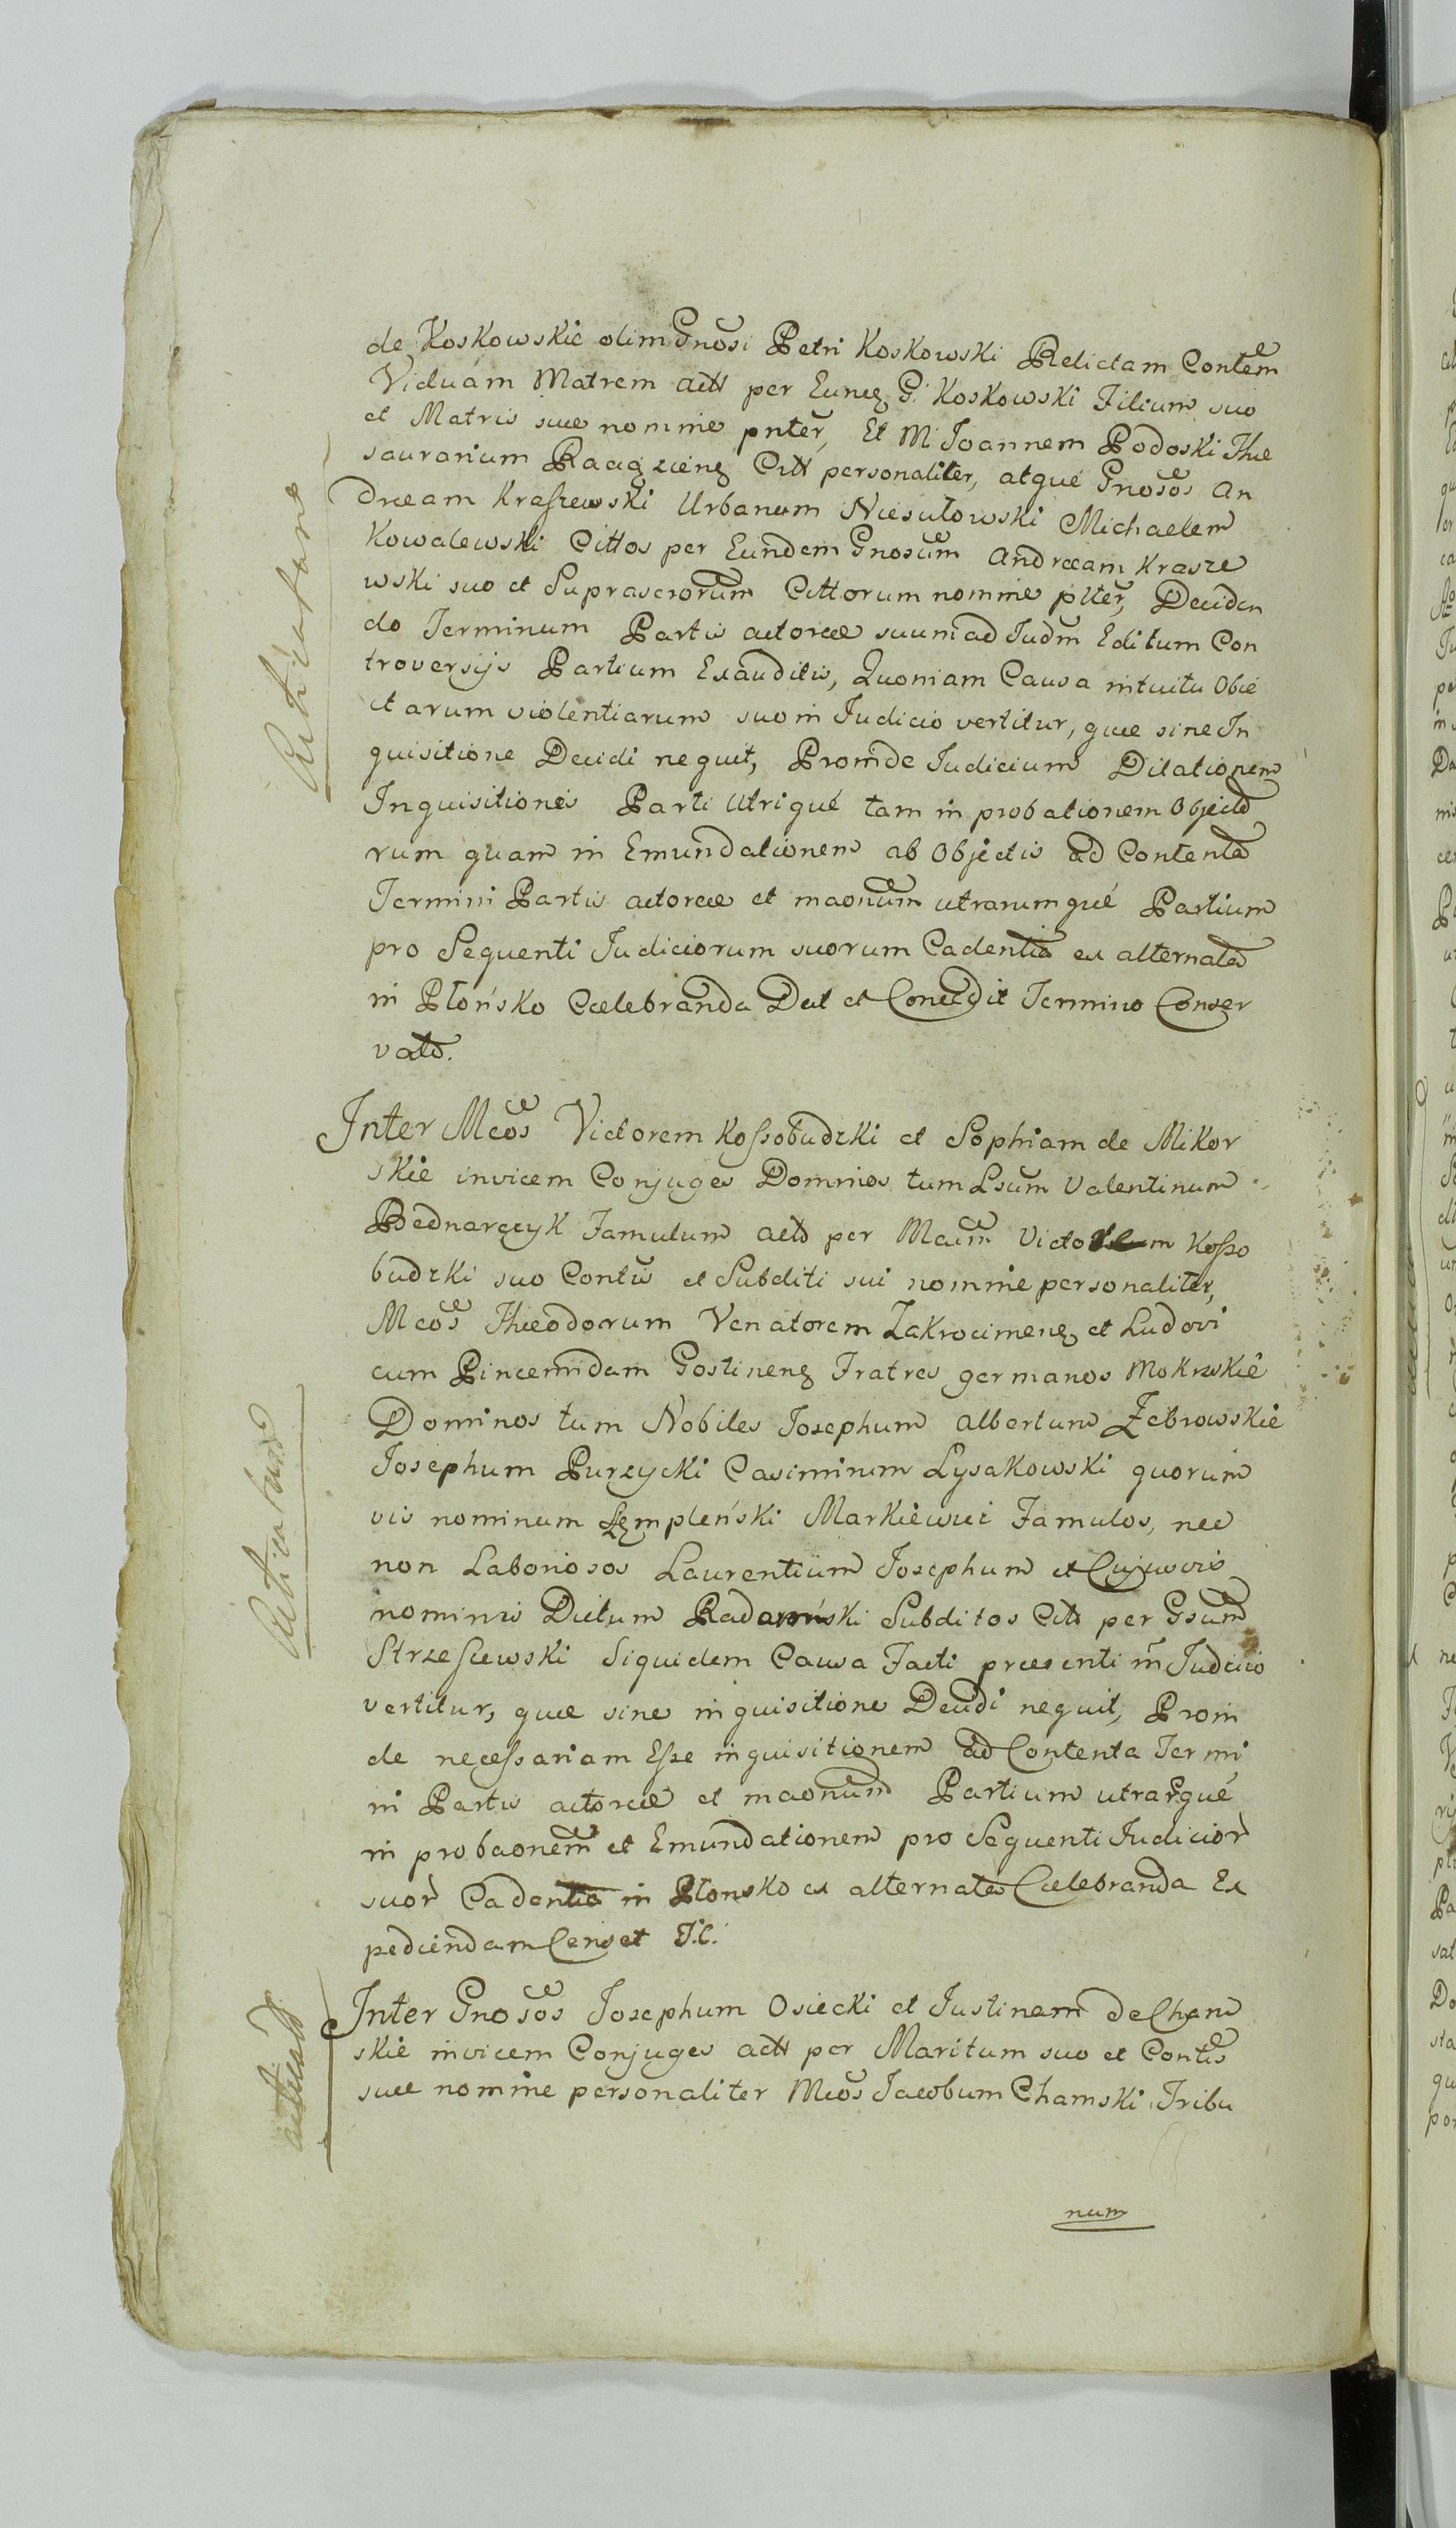 de Koskowskie olim Gnosi Petri Koskowski Relictam Contem
Viduam Matrem actt per Eundem G. Koskowski Filium suo
et Matris suæ nomine pnter, Et M. Joannem Podoski The
saurarium Citt personaliter, atque Gnosos An
dream Kraszewski Urbanum Niesułowski Michaelem
Kowalewski Cittos per Eundem Gnosum Andreæam Krasze
wski suo et Suprascrorum Cittorum nomine plter, Deciden
do Terminum Partis actoreæ suum ad Judm Editum Con
troversijs Partium Exauditis, Quoniam Causa intuitu Obie
ctarum violentiarum suo in Judicio vertitur, quæ sine In
quisitione Decidi nequit, Proinde Judicium Dilationem
Inquisitionis Parti Utrique tam in probationem Objecto
rum quam in Emundationem ab Objectis ad Contenta
Termini Partis actoreæ et maonum utrarumque Partium
pro Sequenti Judiciorum suorum Cadentia ex alternata
in Płońsko Cælebranda Dat et Concedit Termino Conser
vato.
Inter Mcos Victorem Kossobudzki et Sophiam de Mikor
skie invicem Conjuges Dominos tum Lsum Valentinum
Bednarczyk Famulum acto per Mcum Victorem Kosso
budzki suo Contis et Subditi sui nomine personaliter,
Mcos Theodorum Venatorem Zakrocimens et Ludovi
cum Pincernidam Gostinens Fratres germanos Mokrzskie
Dominos tum Nobiles Josephum Albertum Zebrowskie
Josephum Purzycki Casimirum Lysakowski quorum
vis nominum Lempleński Markiewicz Famulos, nec
non Laboriosos Laurentium Josephum et Cujusvis
nominis Dictum Radomski Subditos Citt per Gsum
Strzeszewski Siquidem Causa Facti præsenti in Judicio
vertitur, quæ sine inquisitione Decidi nequit, Proin
de necessariam Esse inquisitionem ad Contenta Termi
ni Partis actoreæ et maonum Partium utrarque
in probaonem et Emundationem pro Sequenti Judicior
suor Cadentia in Płonsko ex alternata Cælebranda Ex
pediendam Censet J.C.
Inter Gnosos Josephum Osiecki et Justinam de Cham
skie invicem Conjuges actt per Maritum suo et Contis
suæ nomine personaliter Mcos Jacobum Chamski Tribu
num